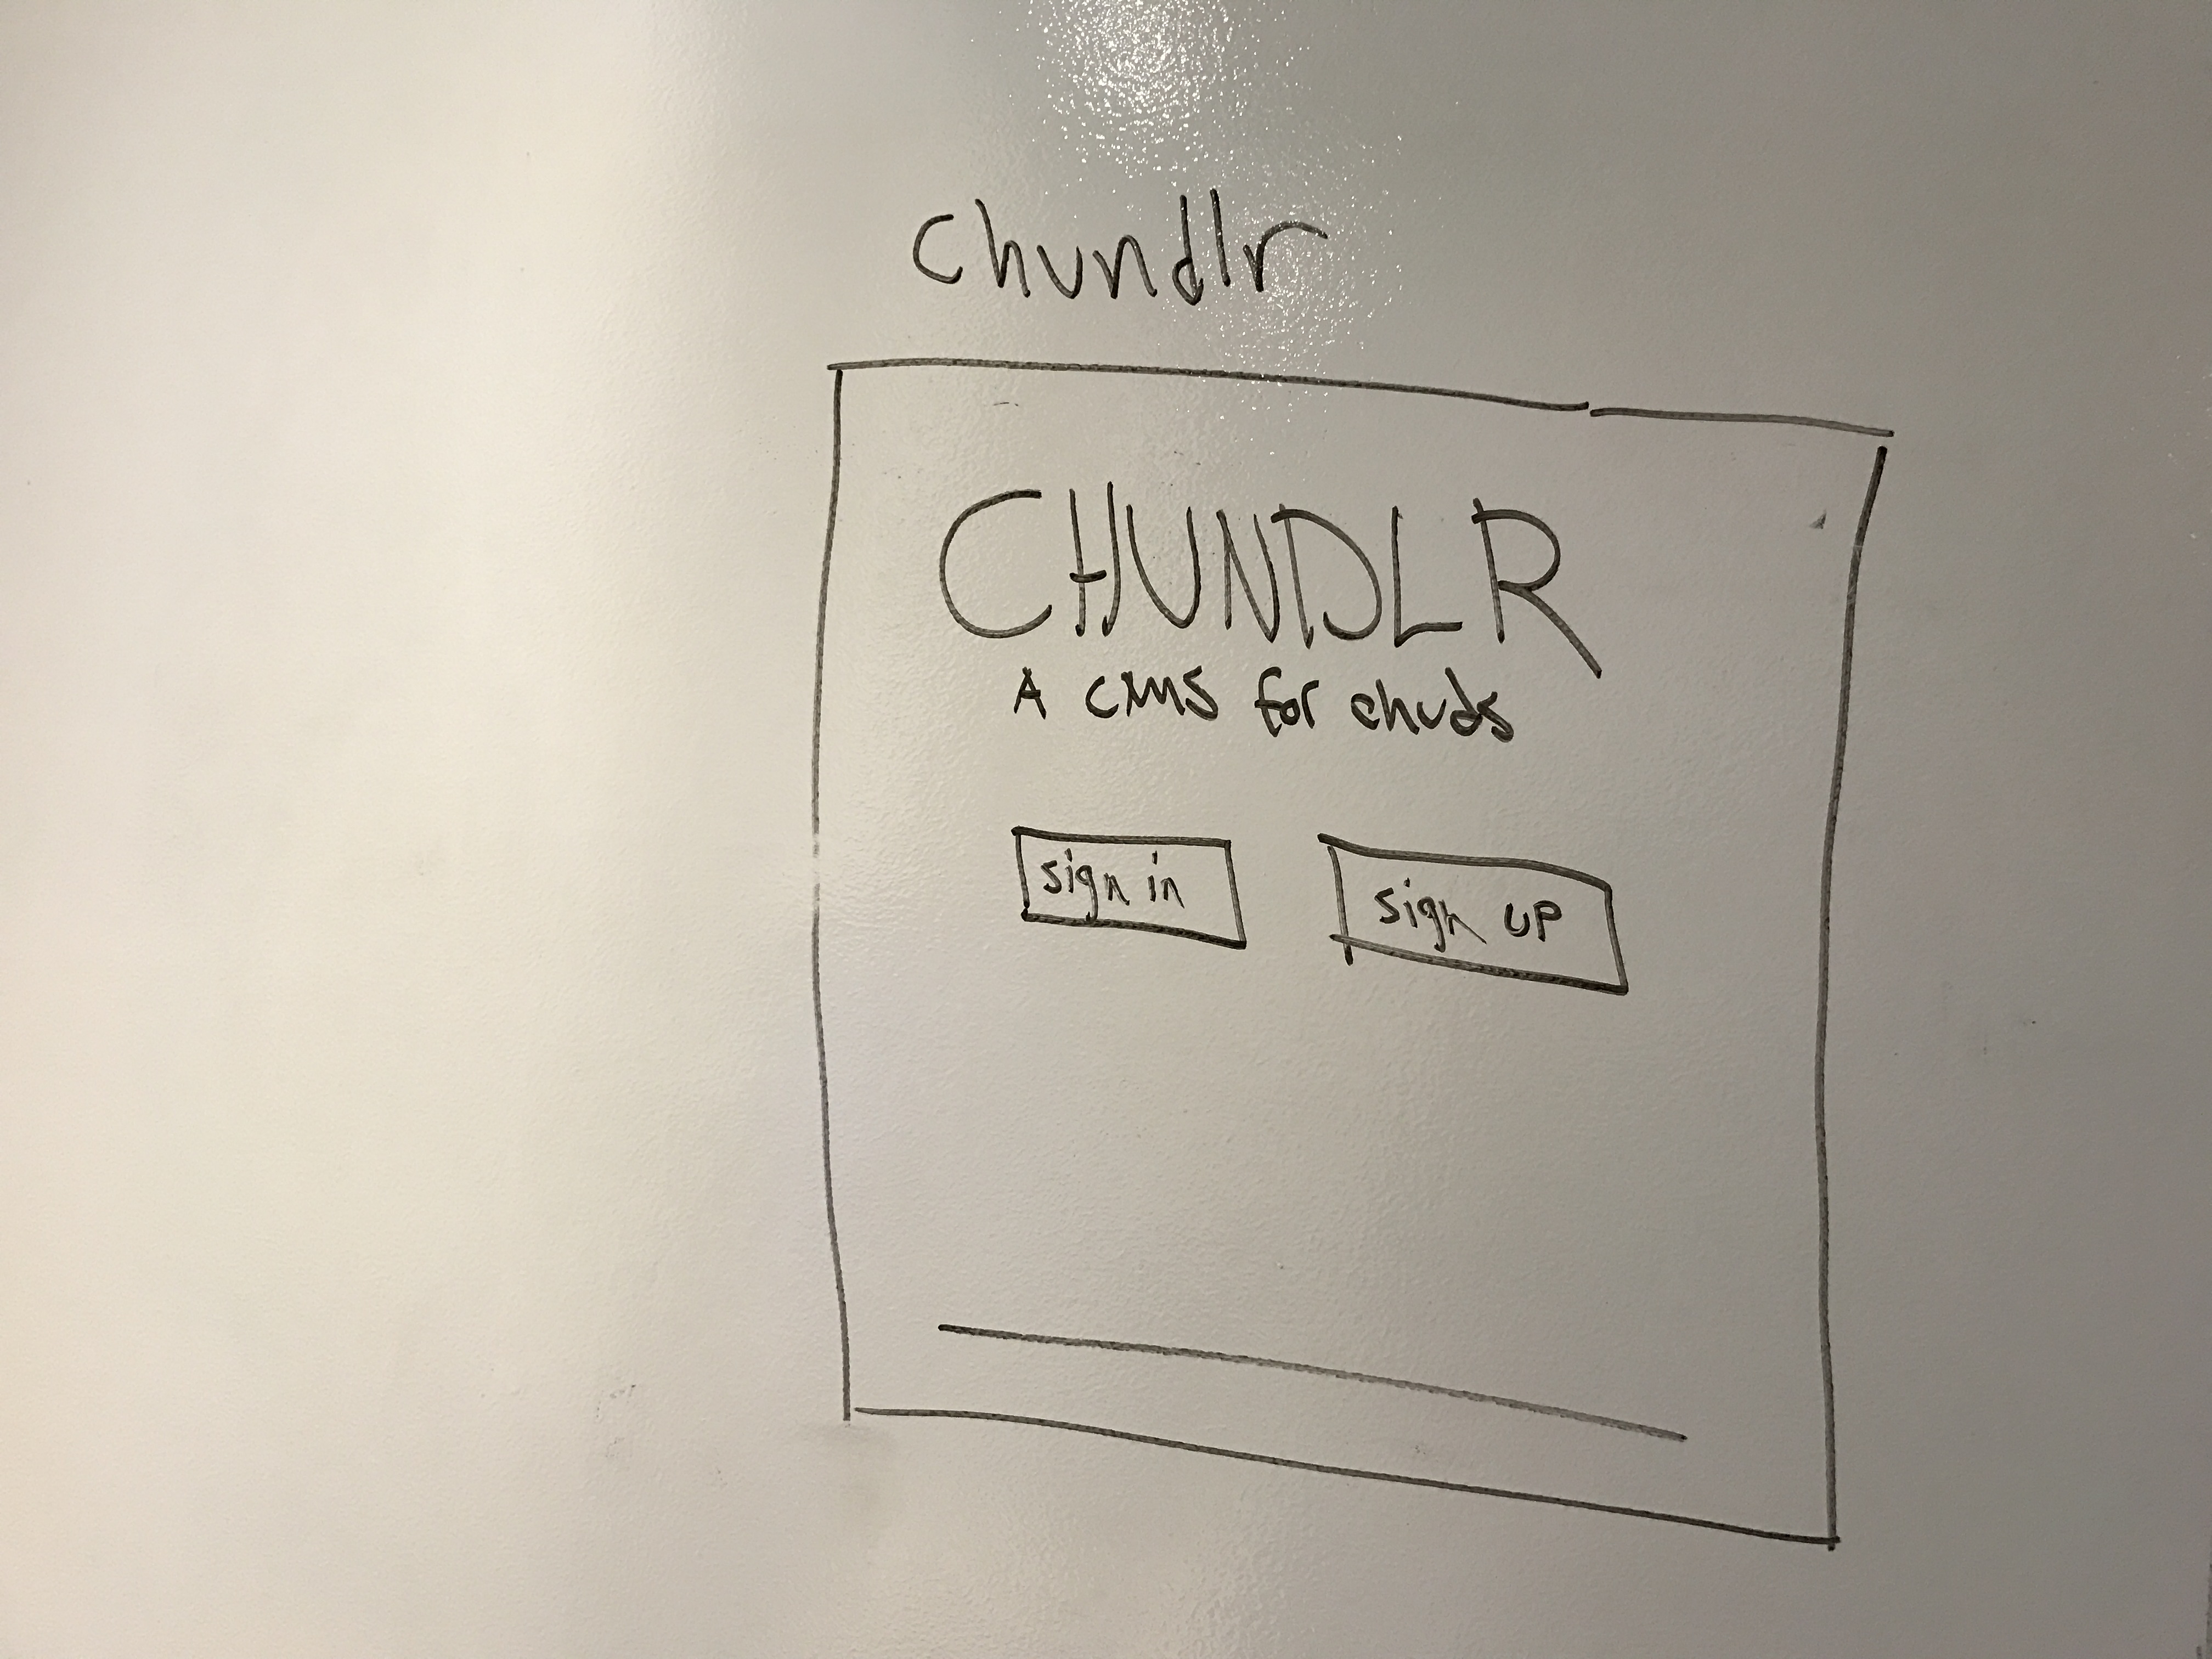 chundlr
CHUNDLR
A CMS for chuds
sign in
sign up